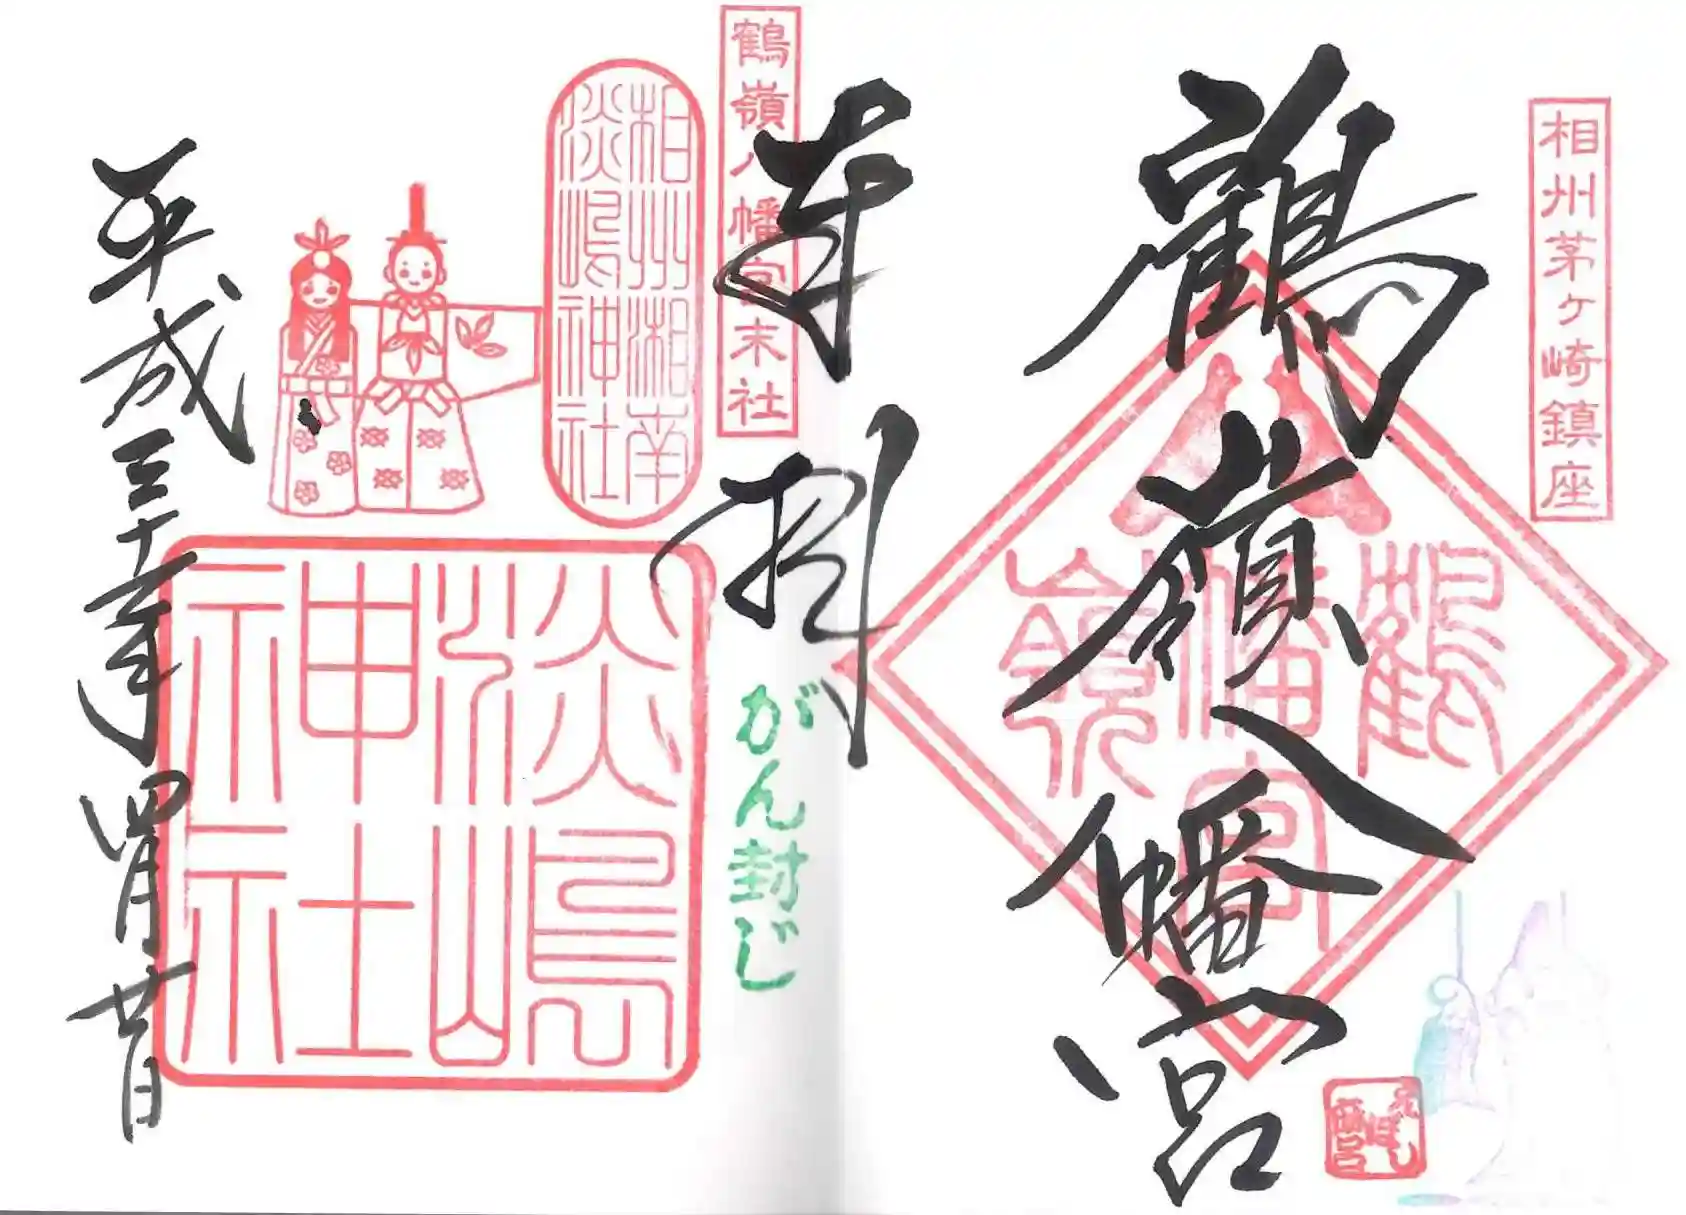 相州茅ヶ崎鎮座
鶴嶺八幡宮
鶴嶺八幡宮
奉拝
鶴嶺八幡宮末社
がん封じ
相州湘南
淡嶋神社
淡嶋
神社
平成三十一年四月廿日